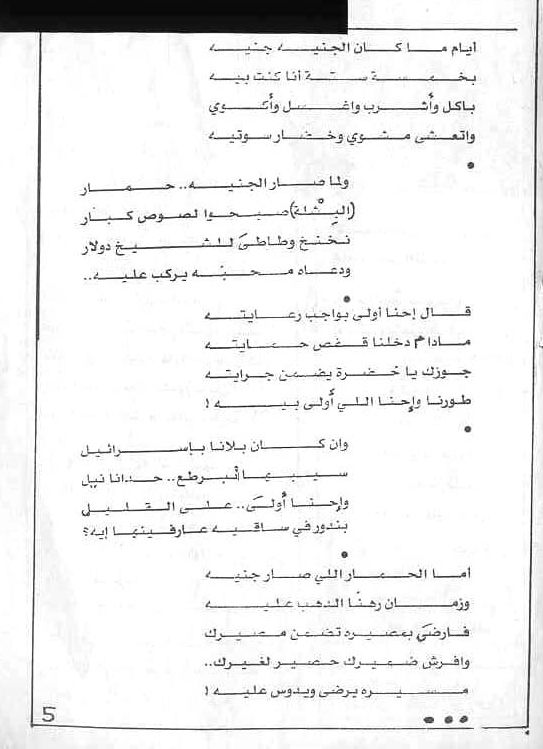 أيام ما كان الجنيه جنيه
بخمسة ستة أنا كنت بيه
باكل وأشرب واغسل وأكوي
واتعشى مشوي وخضار سوتيه
ولما صار الجنيه.. حمار
(البشلة) صبحوا لصوص كبار
نخنخ وطاطى للشيخ دولار
ودعاه محبّه يركب عليه..
قال إحنا أولى بواجب رعايته
مادام دخلنا قفص حمايته
جوزك يا خضرة يضمن جرايته
طورنا وإحنا اللي أولى بيه !
وان كان بلانا بإسرائيل
سيبها تبرطع.. حدانا نيل
وإحنا أولى.. على القليل
بندور في ساقيه عارفينها إيه؟
أما الحمار اللي صار جنيه
وزمان رهنا الدهب عليه
فارضى بمصيره تضمن مصيرك
وافرش ضميرك حصير لغيرك..
مسيره يرضى ويدوس عليه !
5